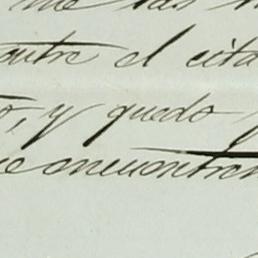 me las
entre el cita
o, y quedo
ue encuentren